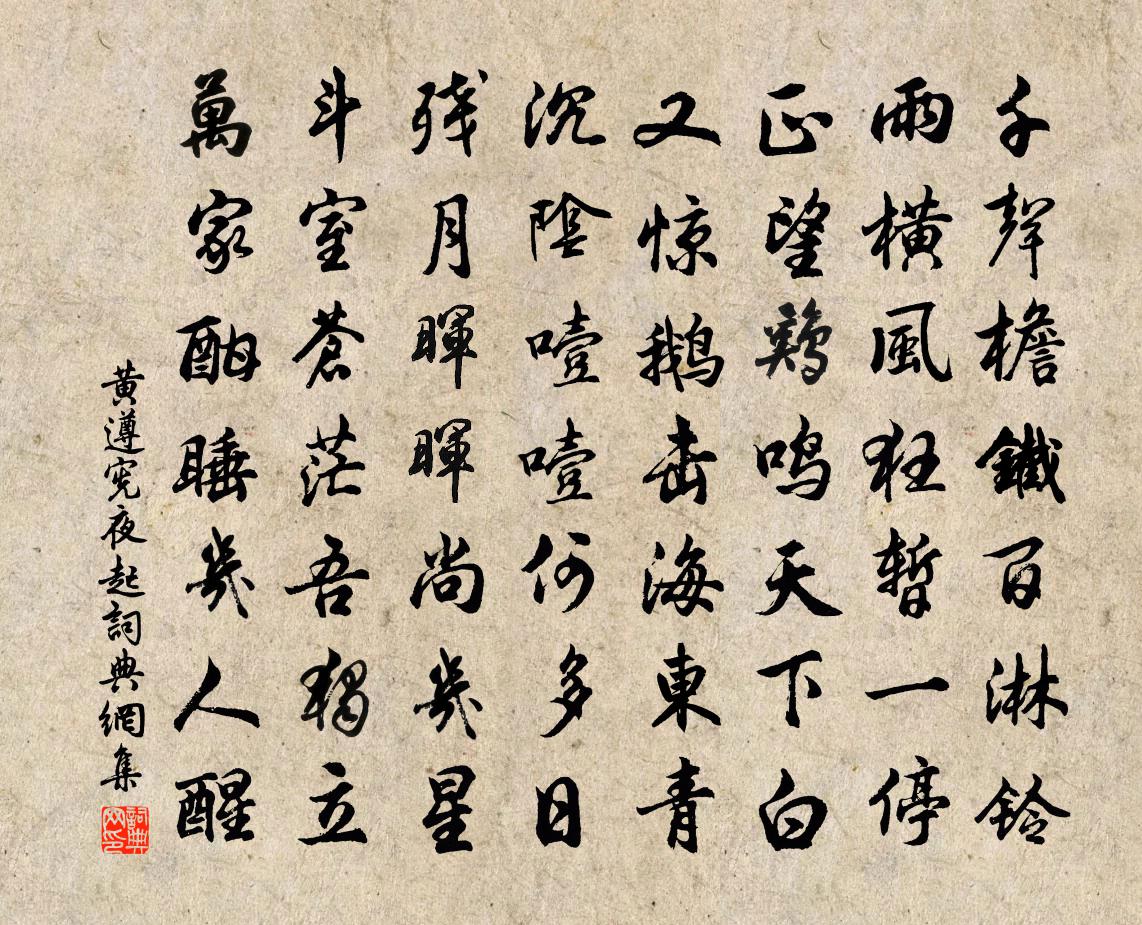 千聲檐鐵百淋鈴
雨橫風狂暫一停
正望鷄鳴天下白
又惊鵝击海東青
沉陰噎噎何多日
残月暉暉尚幾星
斗室蒼茫吾獨立
萬家酣睡幾人醒
黃遵憲夜起詞典網集
詞典网印